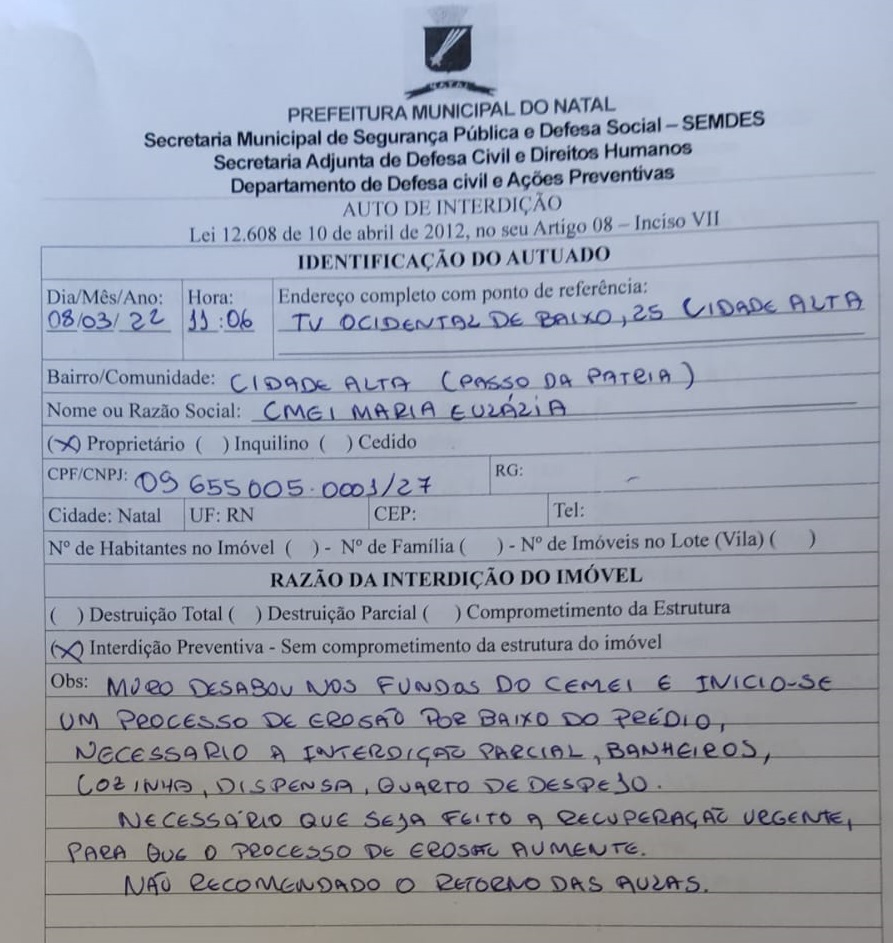 NATAL
PREFEITURA MUNICIPAL DO NATAL
Secretaria Municipal de Segurança Pública e Defesa Social – SEMDES
Secretaria Adjunta de Defesa Civil e Direitos Humanos
Departamento de Defesa civil e Ações Preventivas
AUTO DE INTERDIÇÃO
Lei 12.608 de 10 de abril de 2012, no seu Artigo 08 – Inciso VII
IDENTIFICAÇÃO DO AUTUADO
Dia/Mês/Ano: Hora: Endereço completo com ponto de referência:
08/03/22 11:06 TV OCIDENTAL DE BAIXO, 25 CIDADE ALTA
Bairro/Comunidade: CIDADE ALTA (PASSO DA PATRIA)
Nome ou Razão Social: CMEI MARIA EULÁLIA
(X) Proprietário ( ) Inquilino ( ) Cedido
CPF/CNPJ: 09 655005.0001/27 RG: -
Cidade: Natal UF: RN CEP: Tel:
Nº de Habitantes no Imóvel ( ) - Nº de Família ( ) - Nº de Imóveis no Lote (Vila) ( )
RAZÃO DA INTERDIÇÃO DO IMÓVEL
( ) Destruição Total ( ) Destruição Parcial ( ) Comprometimento da Estrutura
(X) Interdição Preventiva - Sem comprometimento da estrutura do imóvel
Obs: MURO DESABOU NOS FUNDOS DO CEMEI E INICIO-SE
UM PROCESSO DE EROSÃO POR BAIXO DO PRÉDIO,
NECESSARIO A INTERDIÇÃO PARCIAL, BANHEIROS,
COZINHA, DISPENSA, QUARTO DE DESPEJO.
NECESSÁRIO QUE SEJA FEITO A RECUPERAÇÃO URGENTE,
PARA QUE O PROCESSO DE EROSÃO AUMENTE.
NÃO RECOMENDADO O RETORNO DAS AULAS.